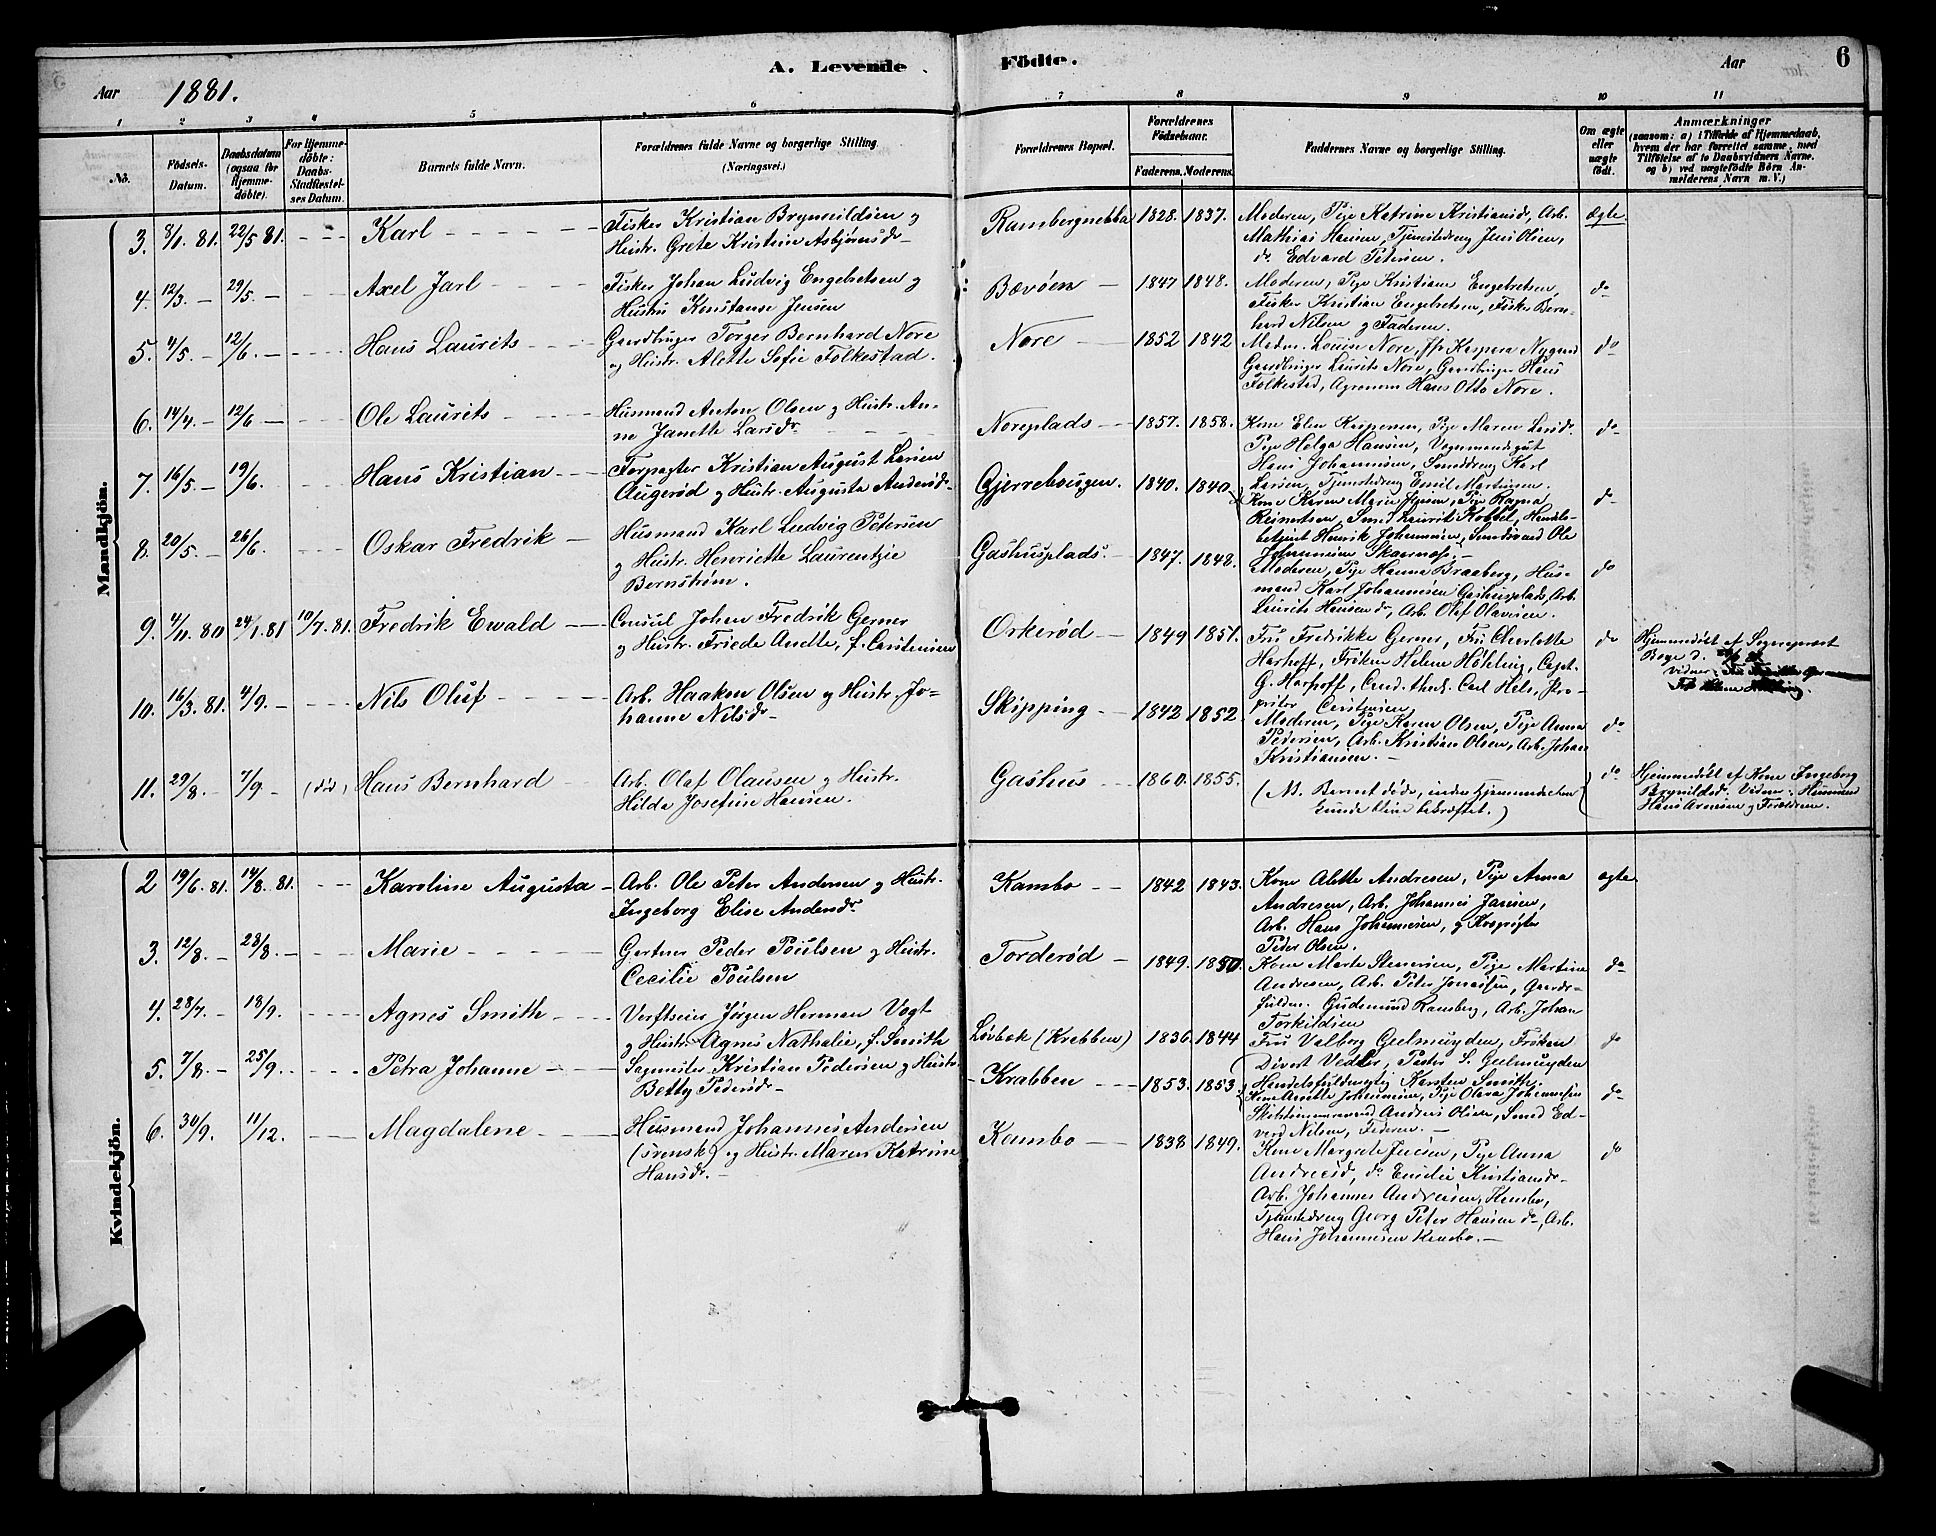 A. Levende Födte.
Aar 1881.
Aar 6
1 2 3 4 5 6 7 8 9 10 11
No.
Födsels-Datum.
Daabsdatum (ogsaa for Hjemmedöbte).
For Hjemmedöbte: Daabs-Stadfæstelses Datum.
Barnets fulde Navn.
Forældrenes fulde Navne og borgerlige Stilling (Næringsvei.)
Forældrenes Bopæl.
Forældrenes Födselsaar.
Faderens. Moderens.
Faddernes Navne og borgerlige Stilling.
Om ægte eller uægte födt.
Anmærkninger
(saasom: a) i Tilfælde af Hjemmedaab, hvem der har forrettet samme, med Tilföielse af to Daabsvidners Navne, og b) ved uægtefödte Börn Anmelderens Navn m. V.)
Mandkjön.
3. 8/1. 81. 22/5 81. Karl
Fisker Kristian Brynildsen og
Hustr. Grete Kristine Asbjørnsdr
Rambergnebba 1828. 1837.
Moderen, Pige Katrine Kristiansd, Arb.
Mathias Hansen, Tjenestedreng Jens Olsen,
do. Edvard Petersen.
ægte
4. 12/3. 29/5. Axel Jarl
Fisker Johan Ludvig Engebretsen og
Hustru Konstanse Jensen
Bævöen 1847 1848.
Moderen, Pige Kristiane Engebretsen,
Fisker Kristian Engebretsen, Fisker Bern-
hard Nilsen og Faderen.
do
5. 4/5. 12/6. Hans Laurits
Gaardbruger Torger Bernhard Nore
og Hustr. Alette Sofie Folkestad.
Nore 1852 1842
Moderen Louise Nore, Kaspara Nygaard
Gaardbruger Laurits Nore, Gaardbruger Hans
Folkestad, Agronom Hans Otto Nore.
do
6. 14/4. 12/6 Ole Laurits
Husmand Anton Olsen og Hustr. An-
ne Janette Larsdr.
Noreplads 1857. 1858.
Kone Elen Kaspersen, Pige Maren Larsdr.
Pige Helga Hansen, Vognmandsgut
Hans Johannesen, Smeddreng Karl
Larsen, Tjenestedreng Emil Martinsen.
do
7. 16/5. 19/6. Hans Kristian
Forpagter Kristian August Larsen
Augerød og Hustr. Augusta Andersdr
Gjerrebougen. 1840. 1840
Kone Karen Marie Hansen, Pige Ragna
Reinertsen, Smed Laurits Kobbel, Handels-
betjent Henrik Johannesen, Smedsvend Ole
Johannesen
do
8. 20/5. 26/6. Oskar Fredrik
Husmand Karl Ludvig Petersen
og Hustr. Henriette Laurentzie
Bernström.
Gashusplads. 1847. 1848.
Moderen, Pige Hanna Braaberg, Hus-
mand Karl Johannesen Gashusplads, Arb.
Laurits Hansen do, Arb. Olaf Olavesen.
do
9. 4/11. 80 24/1. 81 10/7. 81. Fredrik Ewald
Consul Johan Fredrik Gerner
og Hustr. Friede Anette, f. Carstensen
Orkerød 1849 1851.
Fru Fredrikke Gerner, Fru Charlotte
Harhoff, Frøken Helene Höhling, Capt.
G. Harhoff, Cand. theol. Carl Hels, Pro-
prietær Carstensen
do
Hjemmedöbt af Sogneprest
Vidner:
10. 16/3. 81. 4/9. Nils Oluf
Arb. Haaken Olsen og Hustr. Jo-
hanne Nilsdr
Skipping 1842 1852
Moderen, Pige Karen Olsen, Pige Anna
Pedersen, Arb. Kristian Olsen, Arb. Johan
Kristiansen.
do
11. 29/8. 7/9. (död) Hans Bernhard
Arb. Olaf Olausen og Hustr.
Hilda Josefine Hansen.
Gashus 1860. 1855.
(N. Barnet døde, inden Hjemmedaaben
kunde blive bekræftet.)
do
Hjemmedöbt af Kone Ingeborg
Brynildsdr. Vidner: Husmand
Hans Arnesen og Forældrene.
Kvindekjön.
2 19/6. 81. 14/8. 81. Karoline Augusta
Arb. Ole Peter Andersen og Hustr.
Ingeborg Elise Andersdr.
Kambo 1842 1843.
Kone Alette Andresen, Pige Anna
Andresen, Arb. Johannes Jansen,
Arb. Hans Johannesen, og
Peder Olsen.
ægte
3. 12/8. 28/8. Marie
Gartner Peder Poulsen og Hustr.
Cecilie Poulsen
Torderød 1849. 1850.
Kone Marte Stenersen, Pige Martine
Andresen, Arb. Peter Jonassen, Gaards-
fuldm. Gudmund Ramberg, Arb. Johan
Torkildsen
do
4. 28/7. 18/9. Agnes Smith
Verftseier Jørgen Herman Vogt
og Hustr. Agnes Nathalie, f. Smith
Løvbak (Krabben) 1836 1844
Fru Valborg Gulmuyden, Frøken
Divert Vedeler, Pastor S. Gulmuyden
Handelsfuldmægtig Karsten Smith.
do
5. 7/8. 25/9. Petra Johanne
Sagmester Kristian Pedersen og Hustr.
Betty Pedersdr
Krabben 1853. 1853
Kone Anette Johannesen, Pige Olava Johannesen
Skibstømmermand Anders Olsen, Smed Ed-
vard Nilsen, Faderen.
do
6. 30/9. 11/12. Magdalene
Husmand Johannes Andersen
(svensk) og Hustr. Maren Katrine
Hansdr.
Kambo 1838 1849.
Kone Margrete Jensen, Pige Anna
Andreasd, do. Emilie Kristiansdr.
Arb. Johannes Andresen, Kambo,
Tjenestedreng Georg Peter Hansen do, Arb.
Hans Johannesen Kambo.
do